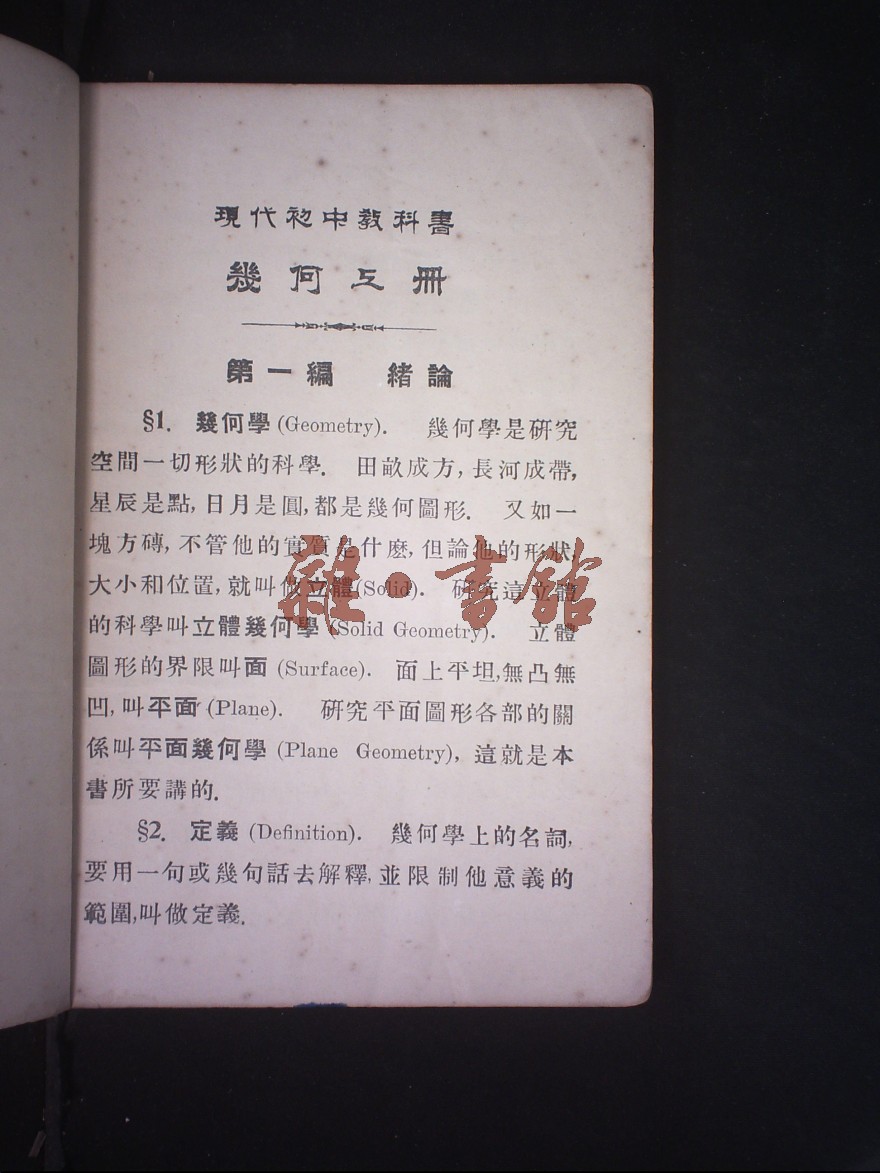 現代初中教科書
幾何上冊
第一編 緒論
§1. 幾何學 (Geometry). 幾何學是硏究
空間一切形狀的科學. 田畝成方, 長河成帶,
星辰是點, 日月是圓, 都是幾何圖形. 又如一
塊方磚, 不管他的實質是什麽, 但論他的形狀,
大小和位置, 就叫做立體 (Solid). 硏究這立體
的科學叫立體幾何學 (Solid Geometry). 立體
圖形的界限叫面 (Surface). 面上平坦, 無凸無
凹, 叫平面 (Plane). 硏究平面圖形各部的關
係叫平面幾何學 (Plane Geometry), 這就是本
書所要講的.
§2. 定義 (Definition). 幾何學上的名詞,
要用一句或幾句話去解釋, 並限制他意義的
範圍, 叫做定義.
雜·書館